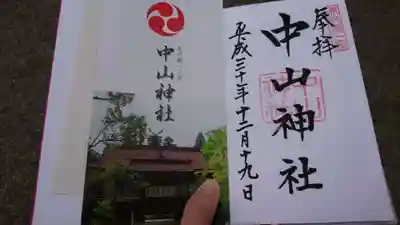 中山神社
奉拝
中山神社
平成三十年十二月十九日